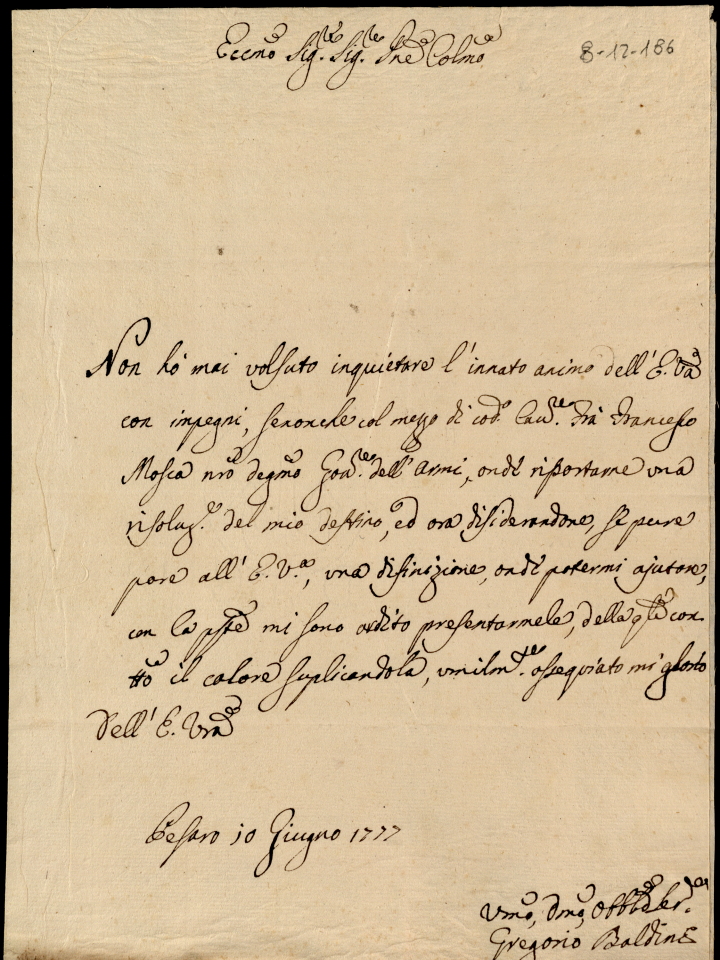 Eccmo Sig.re Sig.re Pne Colmo
8-12-186
Non hò mai volsuto inquietare l'innato animo dell'E. Va
con impegni, senonche col mezzo di cod.o Cav.re Frà Francesco
Mosca nrõ degmo Gov.re dell'Armi, onde riportarne una
risoluz.e del mio destino, ed ora disiderandone, se pure
pare all'E. V.a, una difinizione, onde potermi ajutare,
con la pñte mi sono ordito presentarmele, della qle con
tto il calore suplicandola, umilm.te ossequiato mi glorio
Dell'E. Vra
Pesaro 10 Giugno 1777
Umo, Dmo, Obblmo Ser.re
Gregorio Baldini